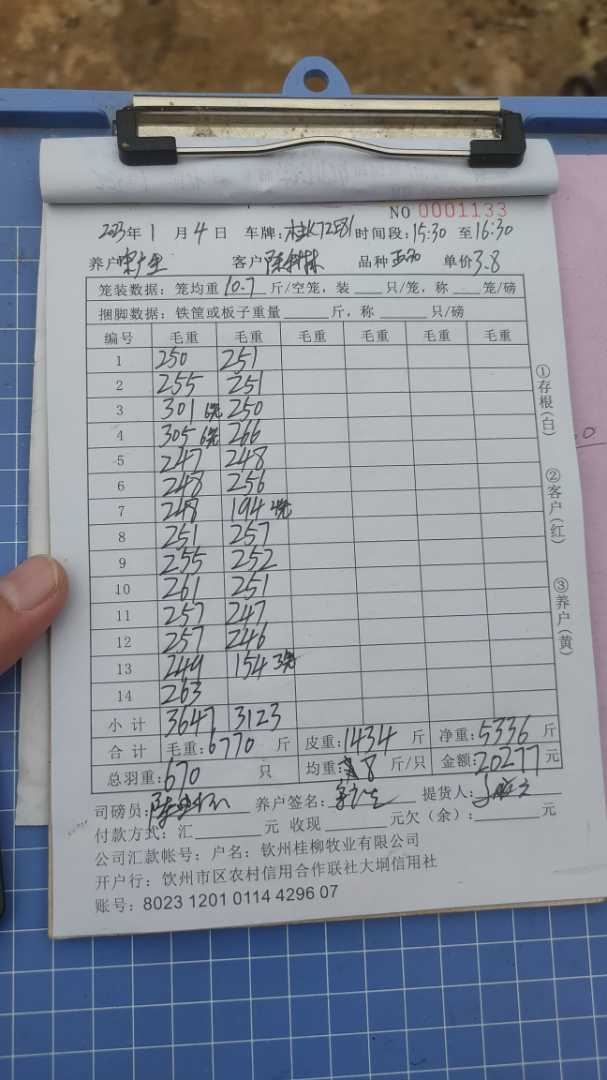 NO 0001133
2023年1月4日 车牌: 时间段:15:30 至16:30
养户 客户 品种 单价3.8
笼装数据:笼均重10.7斤/空笼,装 只/笼,称 笼/磅
捆脚数据:铁筐或板子重量 斤,称 只/磅
编号 毛重 毛重 毛重 毛重 毛重 毛重
1 250 251
2 255 251
3 301 6笼 250
4 305 6笼 266
5 247 248
6 248 256
7 248 194 4笼
8 251 257
9 255 252
10 261 251
11 257 247
12 257 246
13 249 154 3笼
14 263
小计 3647 3123
合计 毛重:6770斤 皮重:1434斤 净重:5336斤
总羽重:670只 均重:8斤/只 金额:20277元
司磅员: 养户签名: 提货人:
付款方式:汇 元 收现 元欠(余): 元
公司汇款帐号:户名:钦州桂柳牧业有限公司
开户行:钦州市区农村信用合作联社大垌信用社
账号:8023 1201 0114 4296 07
①存根(白)
②客户(红)
③养户(黄)